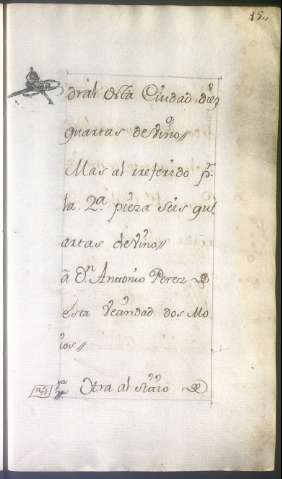 15.
dral desta Ciudad diez
quartas de vino//
Mas al referido pr.
la 2ª pieza seis qu
artas de vino//
a Dn Antonio Perez de
esta veandad dos Mo
ios//
Otra al